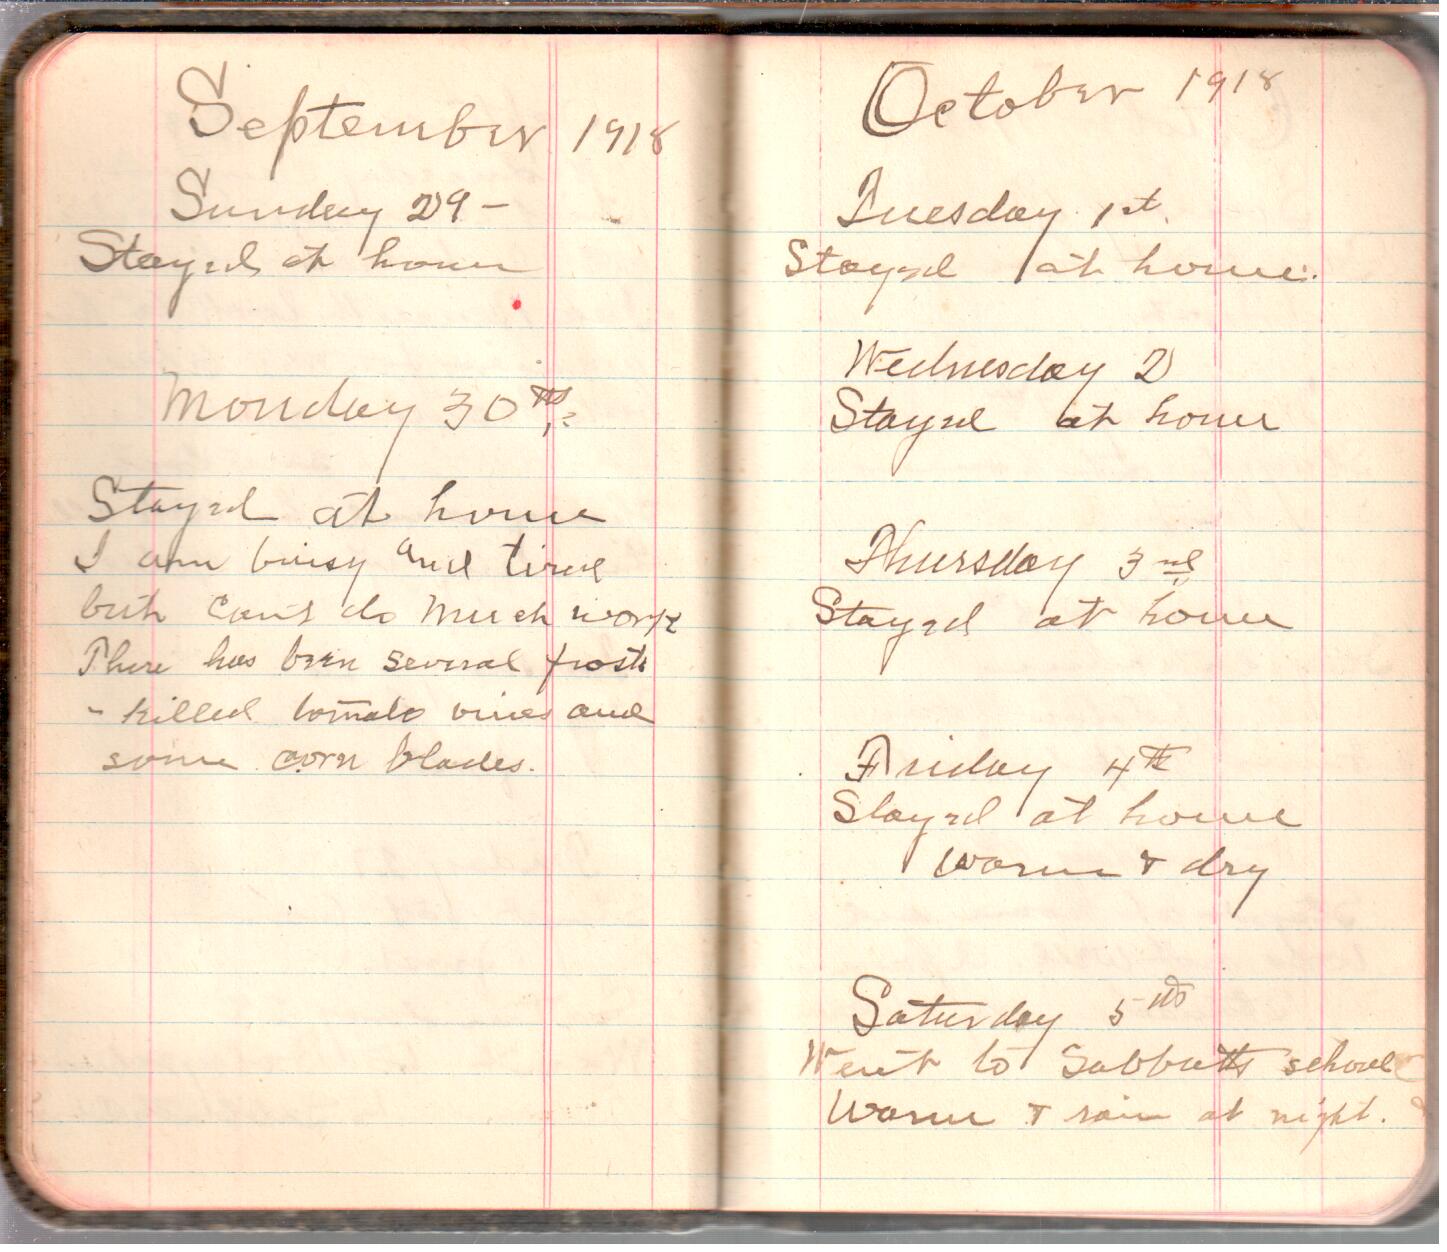 September 1918
Sunday 29-
Stayed at home
Monday 30th,
Stayed at home
I am buisy and tired
but can't do much work
There has been several frosts
- killed tomato vines and
some corn blades.
October 1918
Tuesday 1st.
Stayed at home.
Wednesday 2
Stayed at home
Thursday 3rd
Stayed at home
Friday 4th
Stayed at home
Warm & dry
Saturday 5th
Went to Sabbath school
Warm & rain at night.